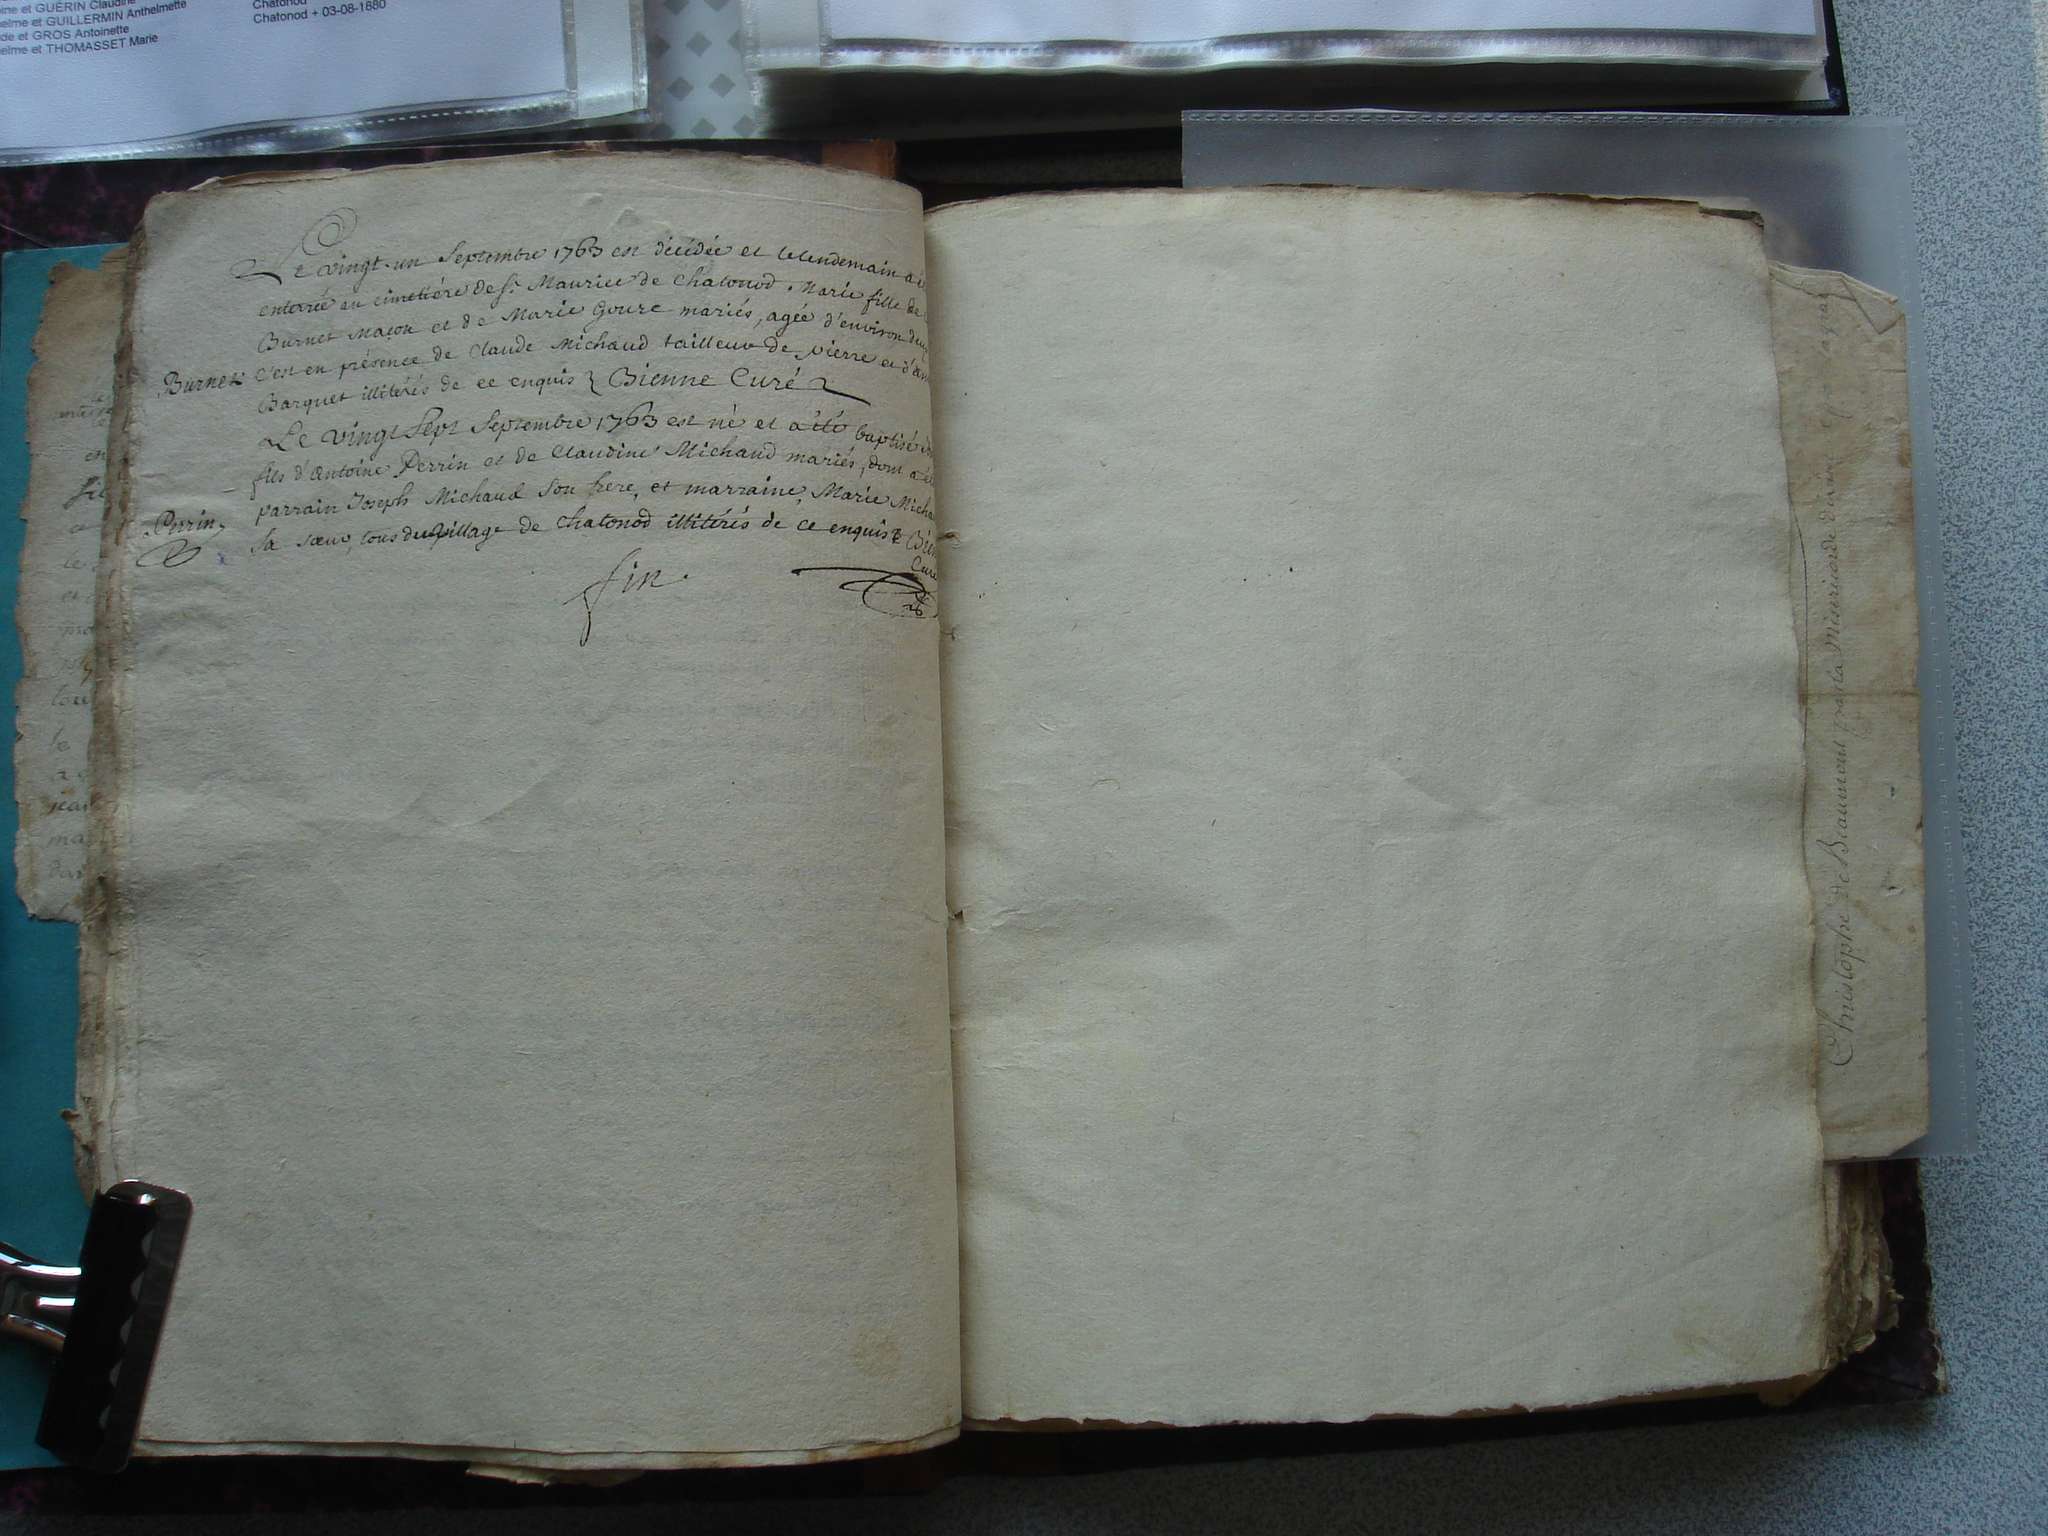 oine et GUÉRIN Claudine
elme et GUILLERMIN Anthelmette
de et GROS Antoinette
elme et THOMASSET Marie
Chatonod
Chatonod + 03-08-1880
Le vingt-un Septembre 1763 est décédée et lelendemain a é
enterrée au cimetiére de St. Maurice de Chatonod. Marie fille de
Burnet Maçon et de Marie Goure mariés, agée d'environ deux
Burnet c'est en présence de Claude Michaud tailleur de pierre et d'an
Barquet illitérés de ce enquis Bienne Curé
Le vingt Sept Septembre 1763 est né et a été baptisé
fils d'Antoine Perrin et de Claudine Michaud mariés, dont a é
parrain Joseph Michaud son frere, et marraine, Marie Micha
Perrin
sa sœur, tous du village de Chatonod illitérés de ce enquis Bien
Curé
fin.
Christophe de Beaumont par la Misericorde divine